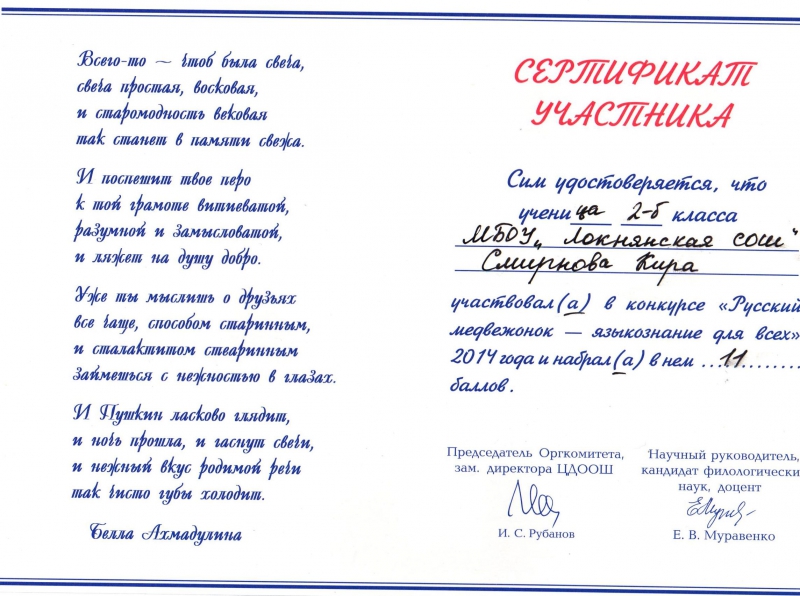 Всего-то — чтоб была свеча,
свеча простая, восковая,
и старомодность вековая
так станет в памяти свежа.
И поспешит твое перо
к той грамоте витиеватой,
разумной и замысловатой,
и ляжет на душу добро.
Уже ты мыслишь о друзьях
все чаще, способом старинным,
и сталактитом стеаринным
займешься с нежностью в глазах.
И Пушкин ласково глядит,
и ночь прошла, и гаснут свечи,
и нежный вкус родимой речи
так чисто губы холодит.
Белла Ахмадулина
СЕРТИФИКАТ
УЧАСТНИКА
Сим удостоверяется, что
ученица 2-б класса
МБОУ „Локнянская сош"
Смирнова Кира
участвовал(а) в конкурсе «Русский
медвежонок — языкознание для всех»
2014 года и набрал(а) в нем ...11.........
баллов.
Председатель Оргкомитета,
зам. директора ЦДООШ
И. С. Рубанов
Научный руководитель,
кандидат филологически
наук, доцент
Е. В. Муравенко